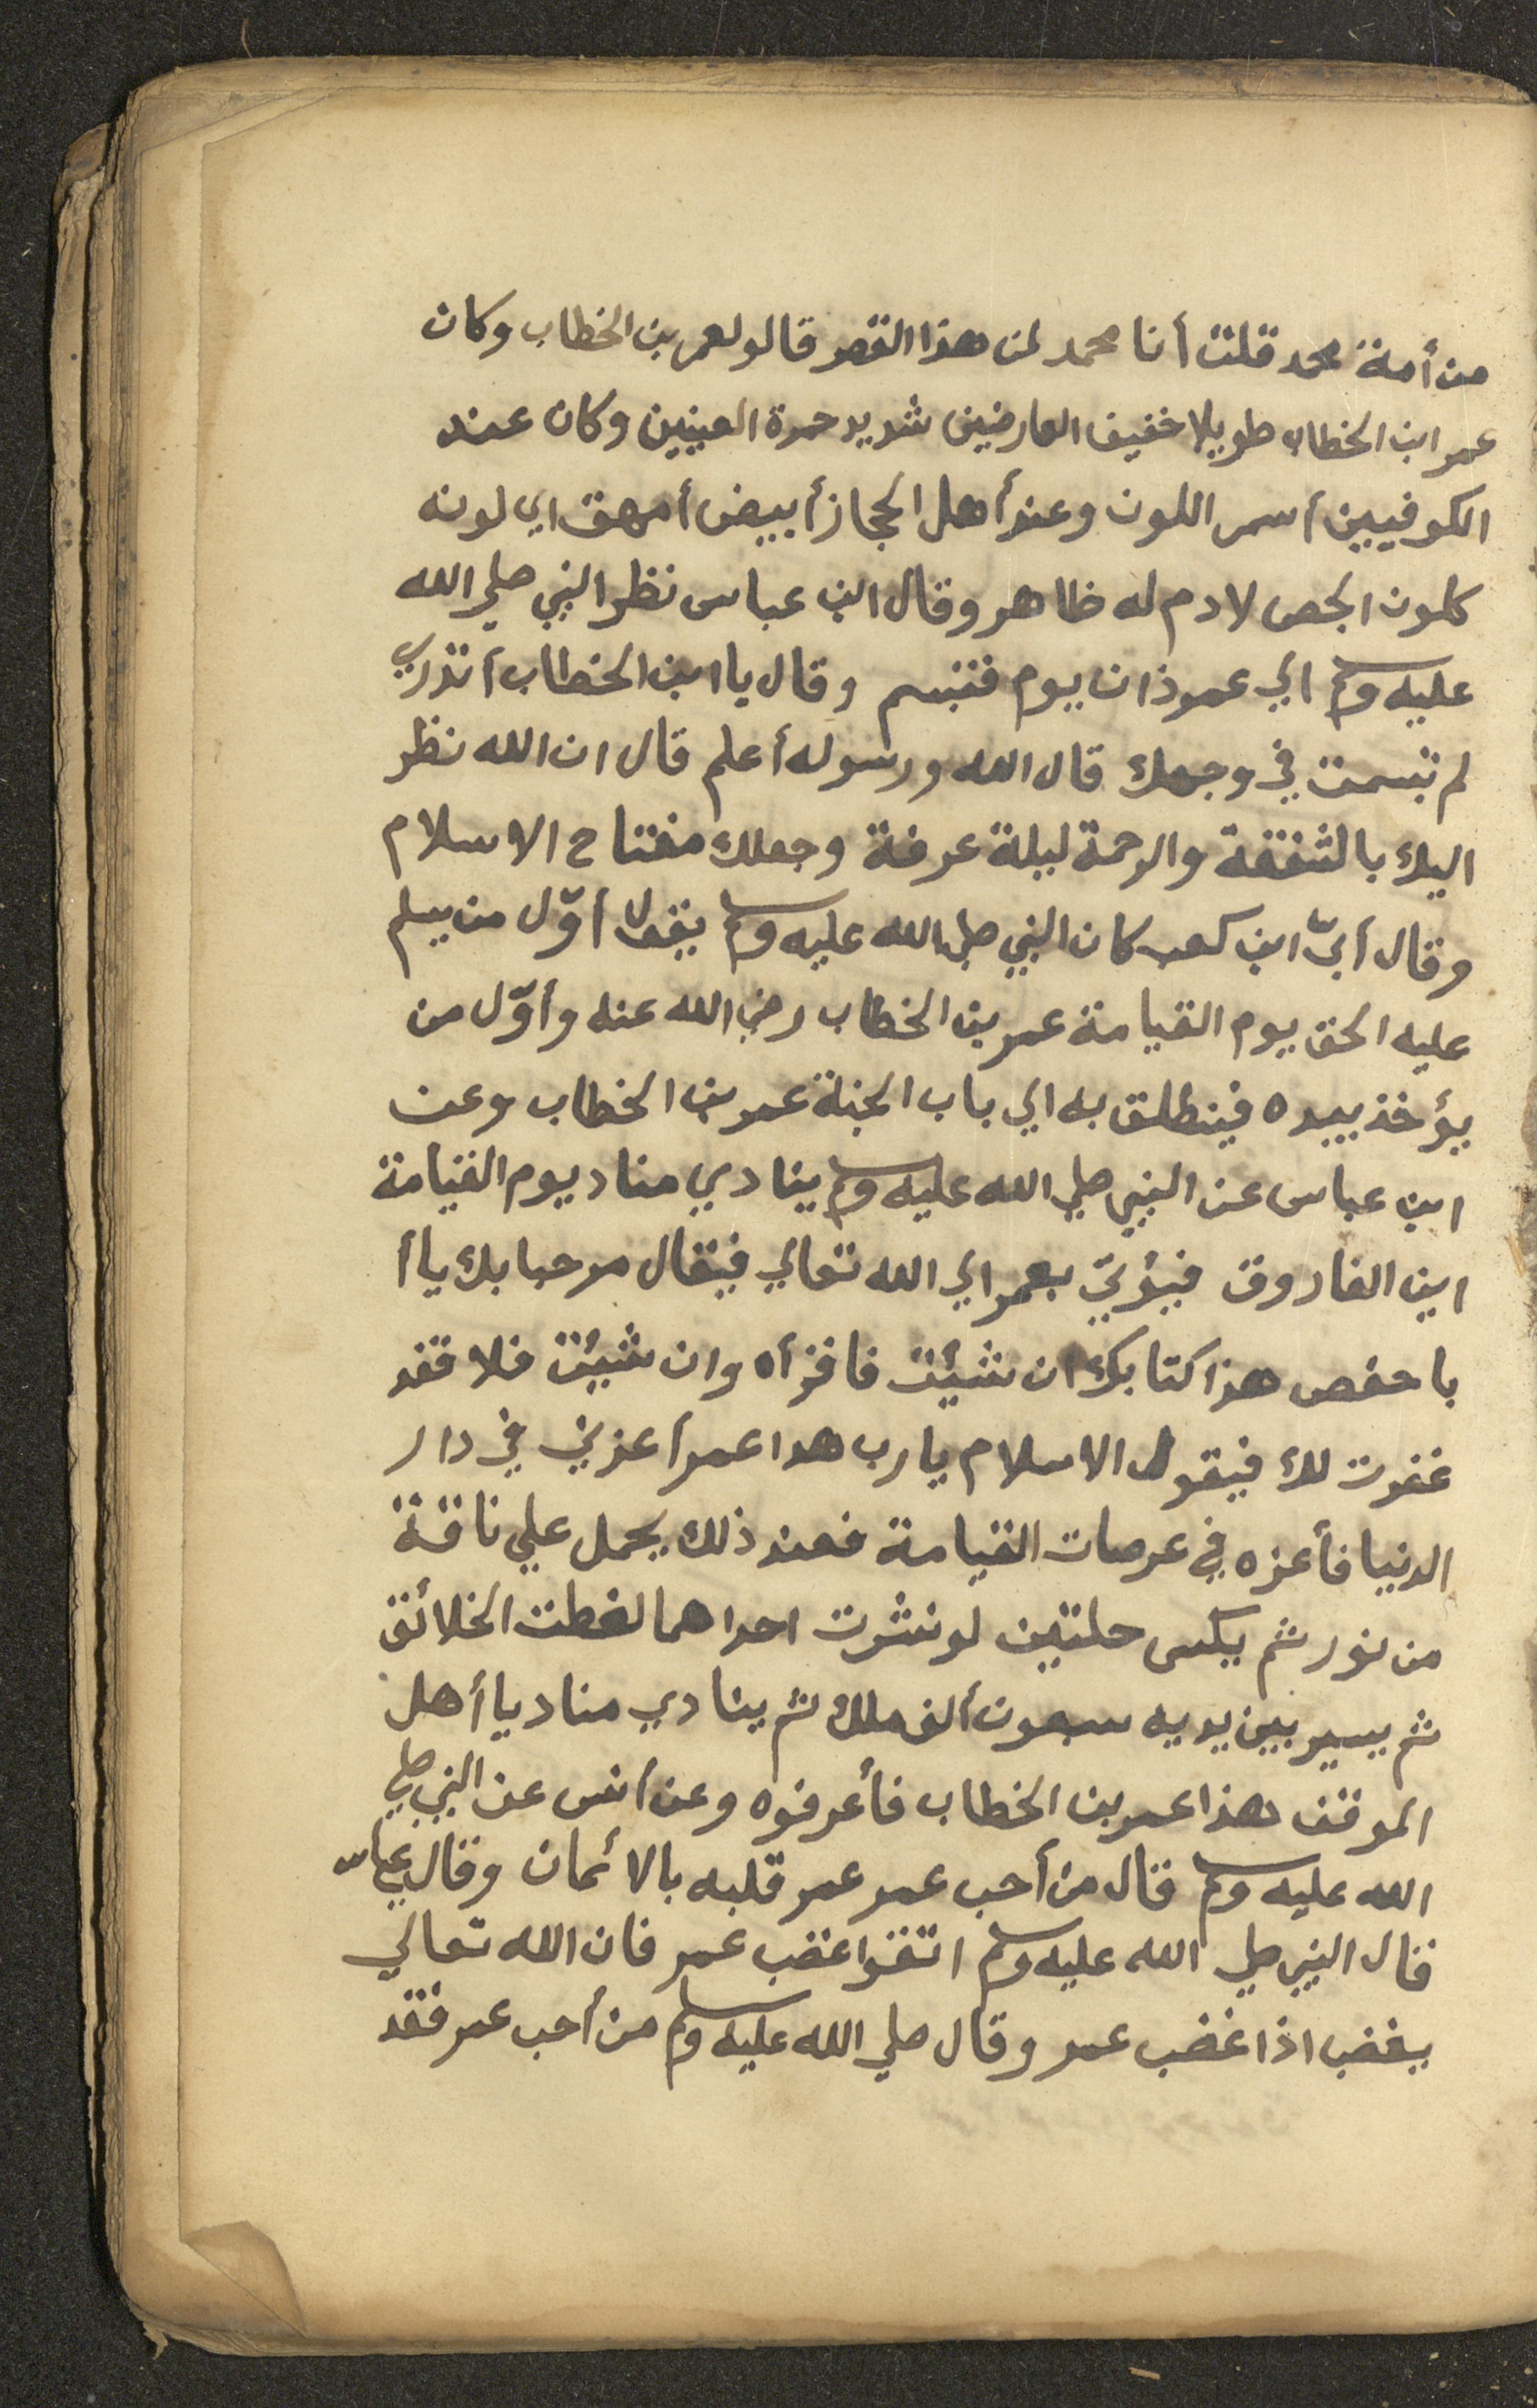 من أمة محمد قلت أنا محمد لمن هذا القصر قالو لعمر بن الخطاب وكان
عمر ابن الخطاب طويلا خفيف العارضين شديد حمرة العينين وكان عند
الكوفيين أسمر اللون وعند أهل الحجاز أبيض أمهق اي لونه
كلون الجص لا دم له ظاهر وقال ابن عباس نظر النبي صلي الله
عليه وسلم الي عمر ذات يوم فتبسم وقال يا ابن الخطاب أتدري
لم تبسمت في وجهك قال الله ورسوله أعلم قال ان الله نظر
اليك بالشفقة والرحمة ليلة عرفة وجعلك مفتاح الاسلام
وقال أبيّ ابن كعب كان النبي صلي الله عليه وسلم يقول أوّل من يسلم
عليه الحق يوم القيامة عمر بن الخطاب رضي الله عنه وأوّل من
يؤخذ بيده فينطلق به الي باب الجنة عمر بن الخطاب وعن
ابن عباس عن النبي صلي الله عليه وسلم ينادي مناد يوم القيامة
اين الفاروق فيؤتي بعمر الي الله تعالي فيقال مرحبا بك يا أ
با حفص هذا كتابك ان شئت فاقرأه وان شئت فلا فقد
غفرت لك فيقول الاسلام يا رب هذا عمر أعزني في دار
الدنيا فأعزه في عرصات القيامة فعند ذلك يحمل علي ناقة
من نور ثم يكسى حلتين لو نشرت احداهما لغطت الخلائق
ثم يسير بين يديه سبعون ألف ملك ثم ينادي مناد يا أهل
الموقف هذا عمر بن الخطاب فأعرفوه وعن أنس عن النبي صلي
الله عليه وسلم قال من أحب عمر عمر قلبه بالائمان وقال
قال النبي صلي الله عليه وسلم اتقوا غضب عمر فان الله تعالي
يغضب اذا غضب عمر وقال صلي الله عليه وسلم من أحب عمر فقد